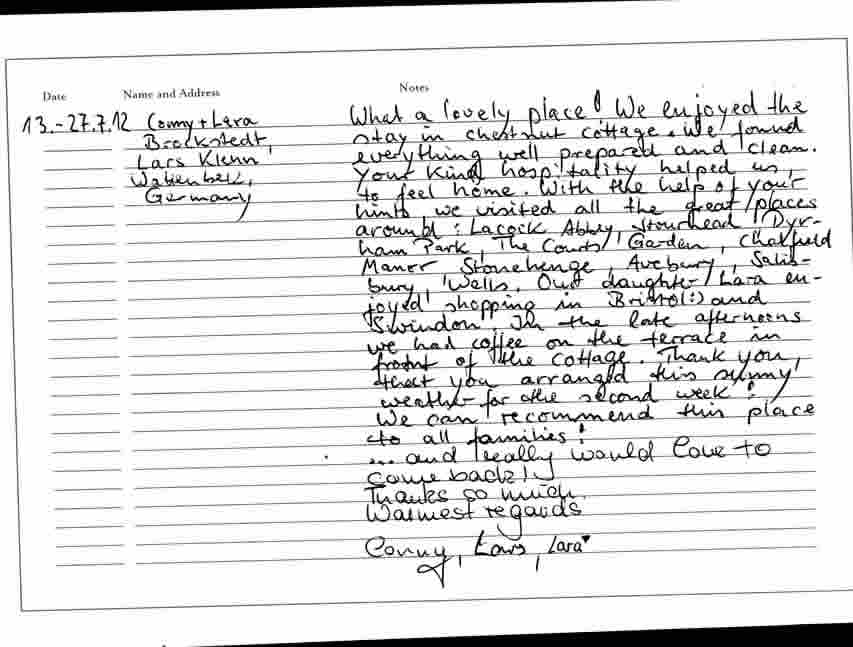 Date Name and Address Notes
13.-27.7.12 Conny + Lara What a lovely place! We enjoyed the
Brockstedt, stay in chestnut cottage. We found
Lars Klenn everything well prepared and clean.
Your kind hospitality helped us,
Germany to feel home. With the help of your
hints we visited all the great places
around: Lacock Abbey, Stourhead, Dyr-
ham Park, The Courts Garden, Chalfield
Maner, Stonehenge, Avebury, Salis-
bury, Wells. Our daughter Lara en-
joyed shopping in Bristol (:) and
Swindon. In the late afternoons
we had coffee on the terrace in
front of the cottage. Thank you,
that you arranged this sunny
weather for the second week!
We can recommend this place
to all families!
... and really would love to
come back!
Thanks so much.
Warmest regards
Conny, Lars, Lara♥